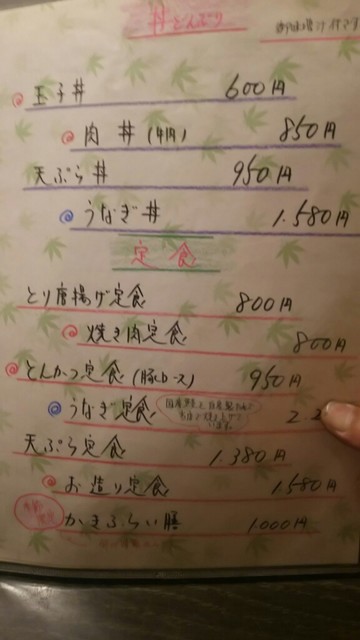 丼どんぶり
玉子丼 600円
肉丼(牛肉) 850円
天ぷら丼 950円
うなぎ丼 1.580円
定食
とり唐揚げ定食 800円
焼き肉定食 800円
とんかつ定食(豚ロース) 950円
うなぎ定食
天ぷら定食 1.380円
お造り定食 1,580円
かきふらい膳 1.000円